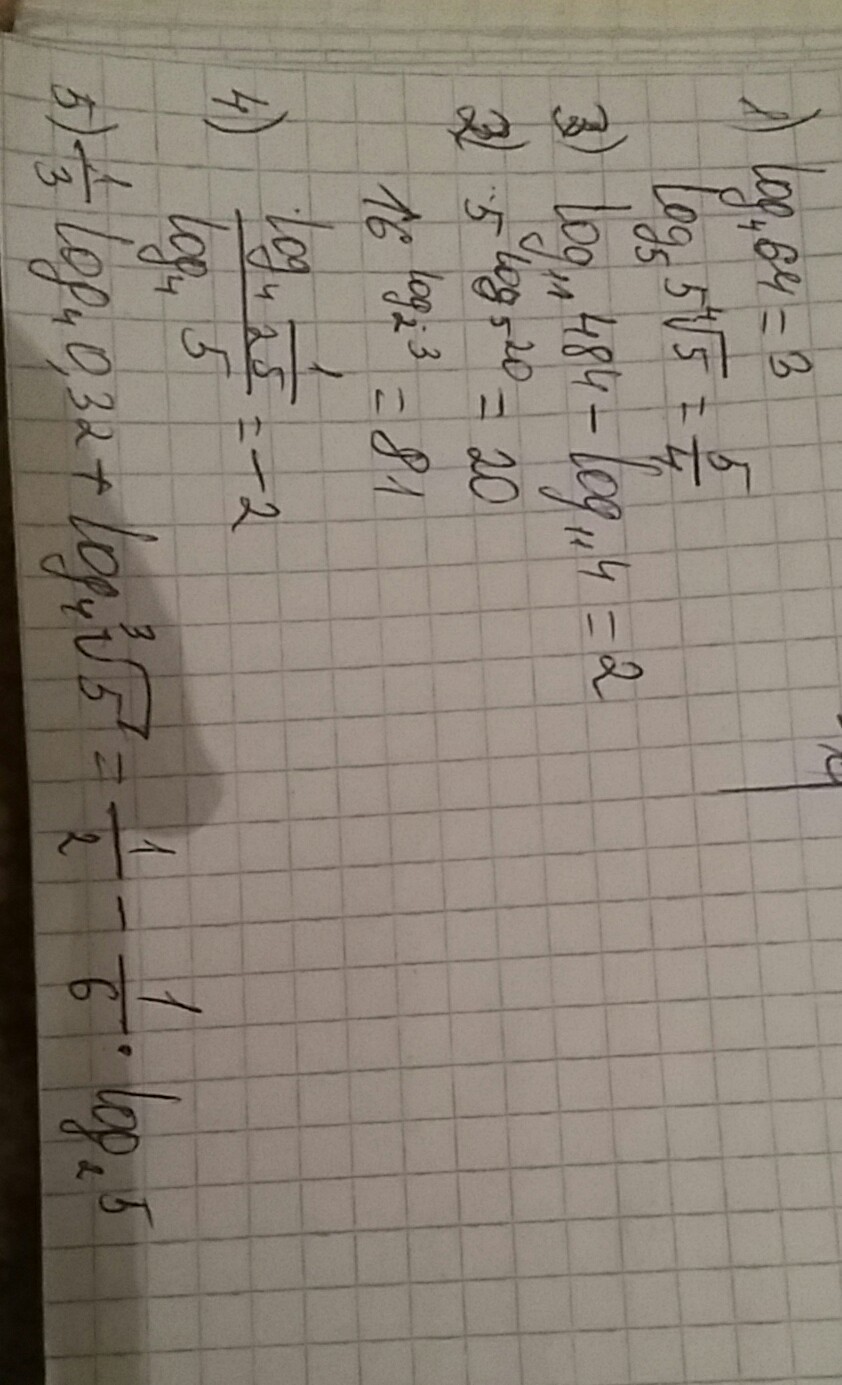 1) log₄ 64 = 3
log₅ 5⁴√5 = 5/4
3) log₁₁ 484 - log₁₁ 4 = 2
2) 5^(log₅ 20) = 20
16^(log₂ 3) = 81
4) (log₄ 1/25)/(log₄ 5) = -2
5) 1/3 log₄ 0,32 + log₄ ³√5 = 1/2 - 1/6 · log₂ 5